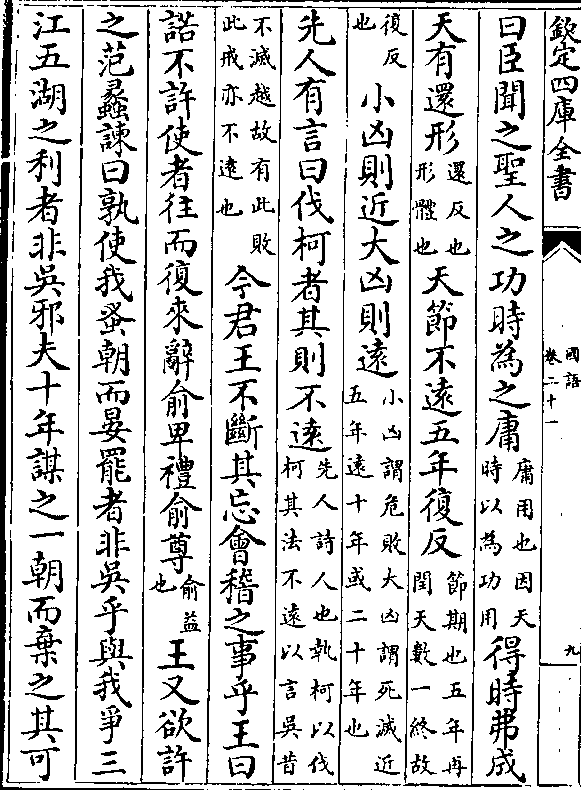 欽定四庫全書
國語
卷二十一
九
曰臣聞之聖人之功時為之庸庸用也因天時以為功用得時弗成
天有還形還反也形體也天節不遠五年復反節期也五年再閏天數一終故
復反也小凶則近大凶則遠小凶謂危敗大凶謂死滅近五年遠十年或二十年也
先人有言曰伐柯者其則不遠先人詩人也執柯以伐柯其法不遠以言吳昔
不滅越故有此敗此戒亦不遠也今君王不斷其忘會稽之事乎王曰
諾不許使者往而復來辭俞卑禮俞尊俞益也王又欲許
之范蠡諫曰孰使我蚤朝而晏罷者非吳乎與我爭三
江五湖之利者非吳邪夫十年謀之一朝而棄之其可